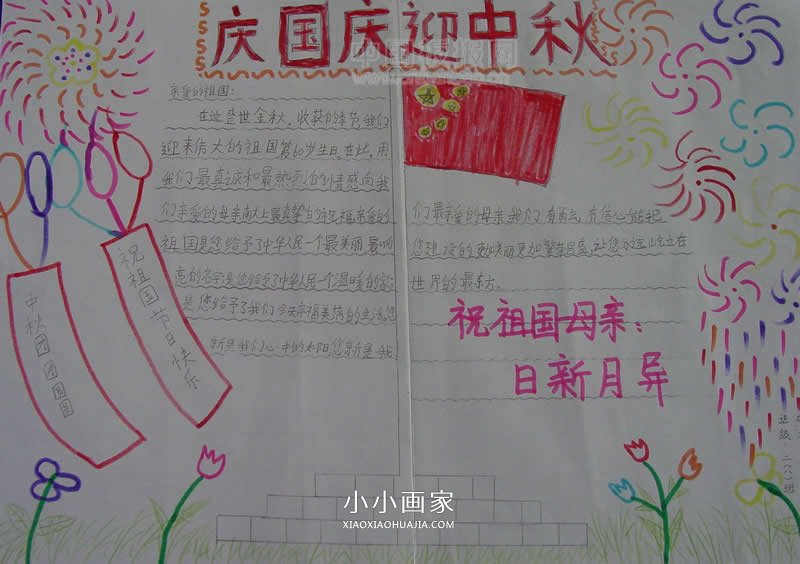 庆国庆迎中秋
亲爱的祖国:
在这盛世金秋,收获的季节,我们
迎来伟大的祖国第60岁生日。在此,用
我们最真诚和最热烈的情感向我
们亲爱的母亲献上最真挚的祝福亲爱的
祖国是您给予了中华人民一个最美丽最响
亮的名字是您给予了中华人民一个温暖的家
是您给予了我们今天幸福美落的生活,您
就是我们心中的太阳您就是我
们最亲爱的母亲我们有勇气,有信心能把
您建设的更加美丽更加繁荣昌盛,让您永远屹立在
世界的最东方。
祝祖国母亲:
日新月异
祝祖国节日快乐
中秋团团圆圆
班级:二(八)班
小小画家
XIAOXIAOHUAJIA.COM